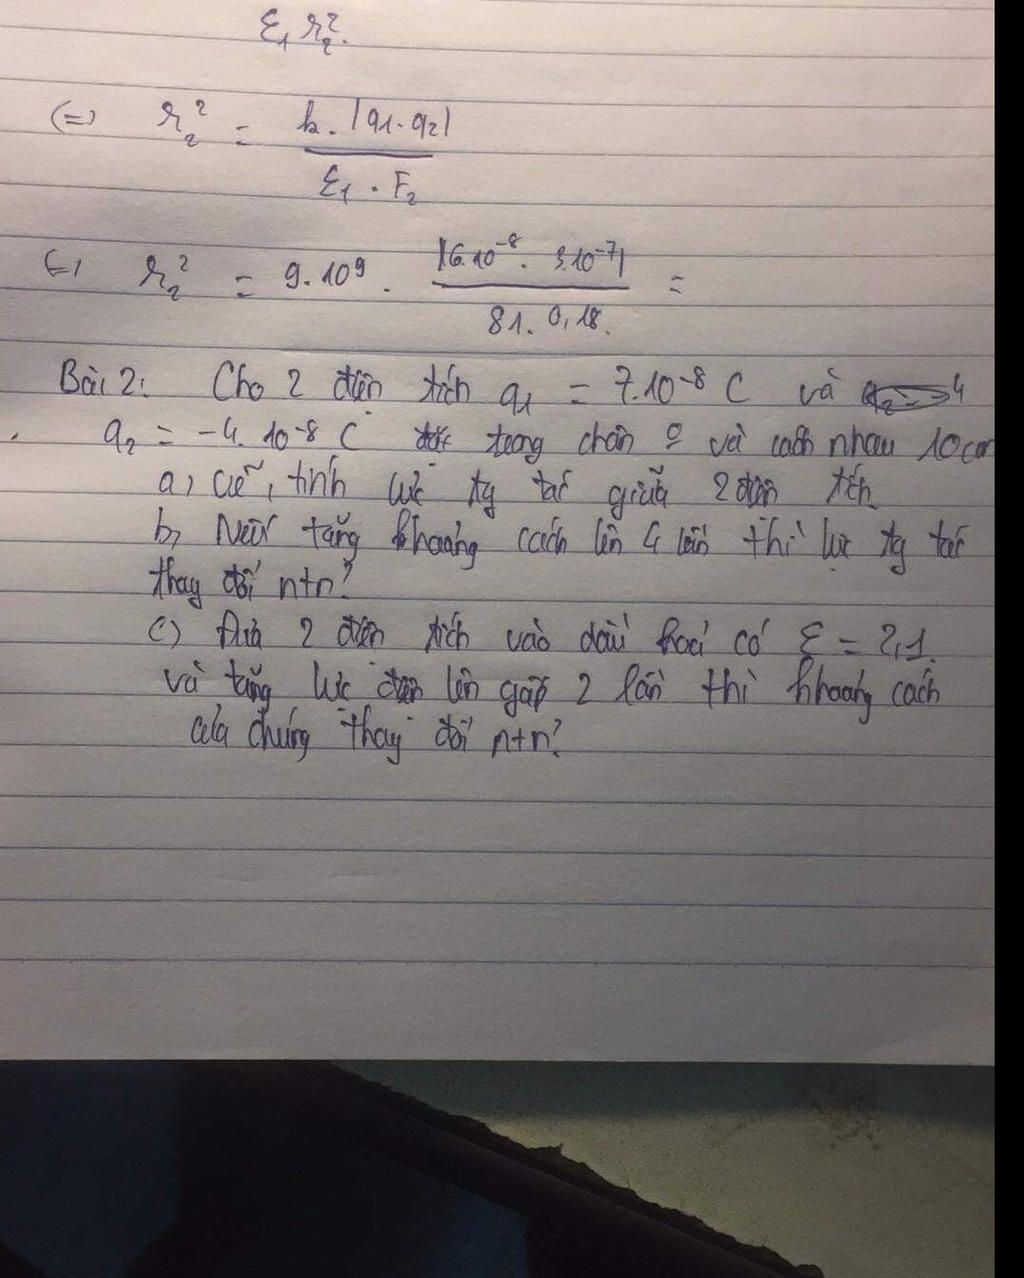 ε₁ r₂².
(=) r₂² = k. |q1. q2| / ε₁ . F₂
(=) r₂² = 9. 10⁹ . |6.10⁻⁸. 3.10⁻⁷| / 81. 0,18. =
Bài 2: Cho 2 điện tích q₁ = 7.10⁻⁸ C và
q₂ = -4. 10⁻⁸ C đặt trong chân o và cách nhau 10cm
a) vẽ, tính lực tg tác giữa 2 điện tích
b, Nếu tăng khoảng cách lên 4 lần thì lực tg tác
thay đổi ntn?
c) Đưa 2 điện tích vào dầu hoả có ε = 2,1.
và tăng lực điện lên gấp 2 lần thì khoảng cách
của chúng thay đổi ntn?